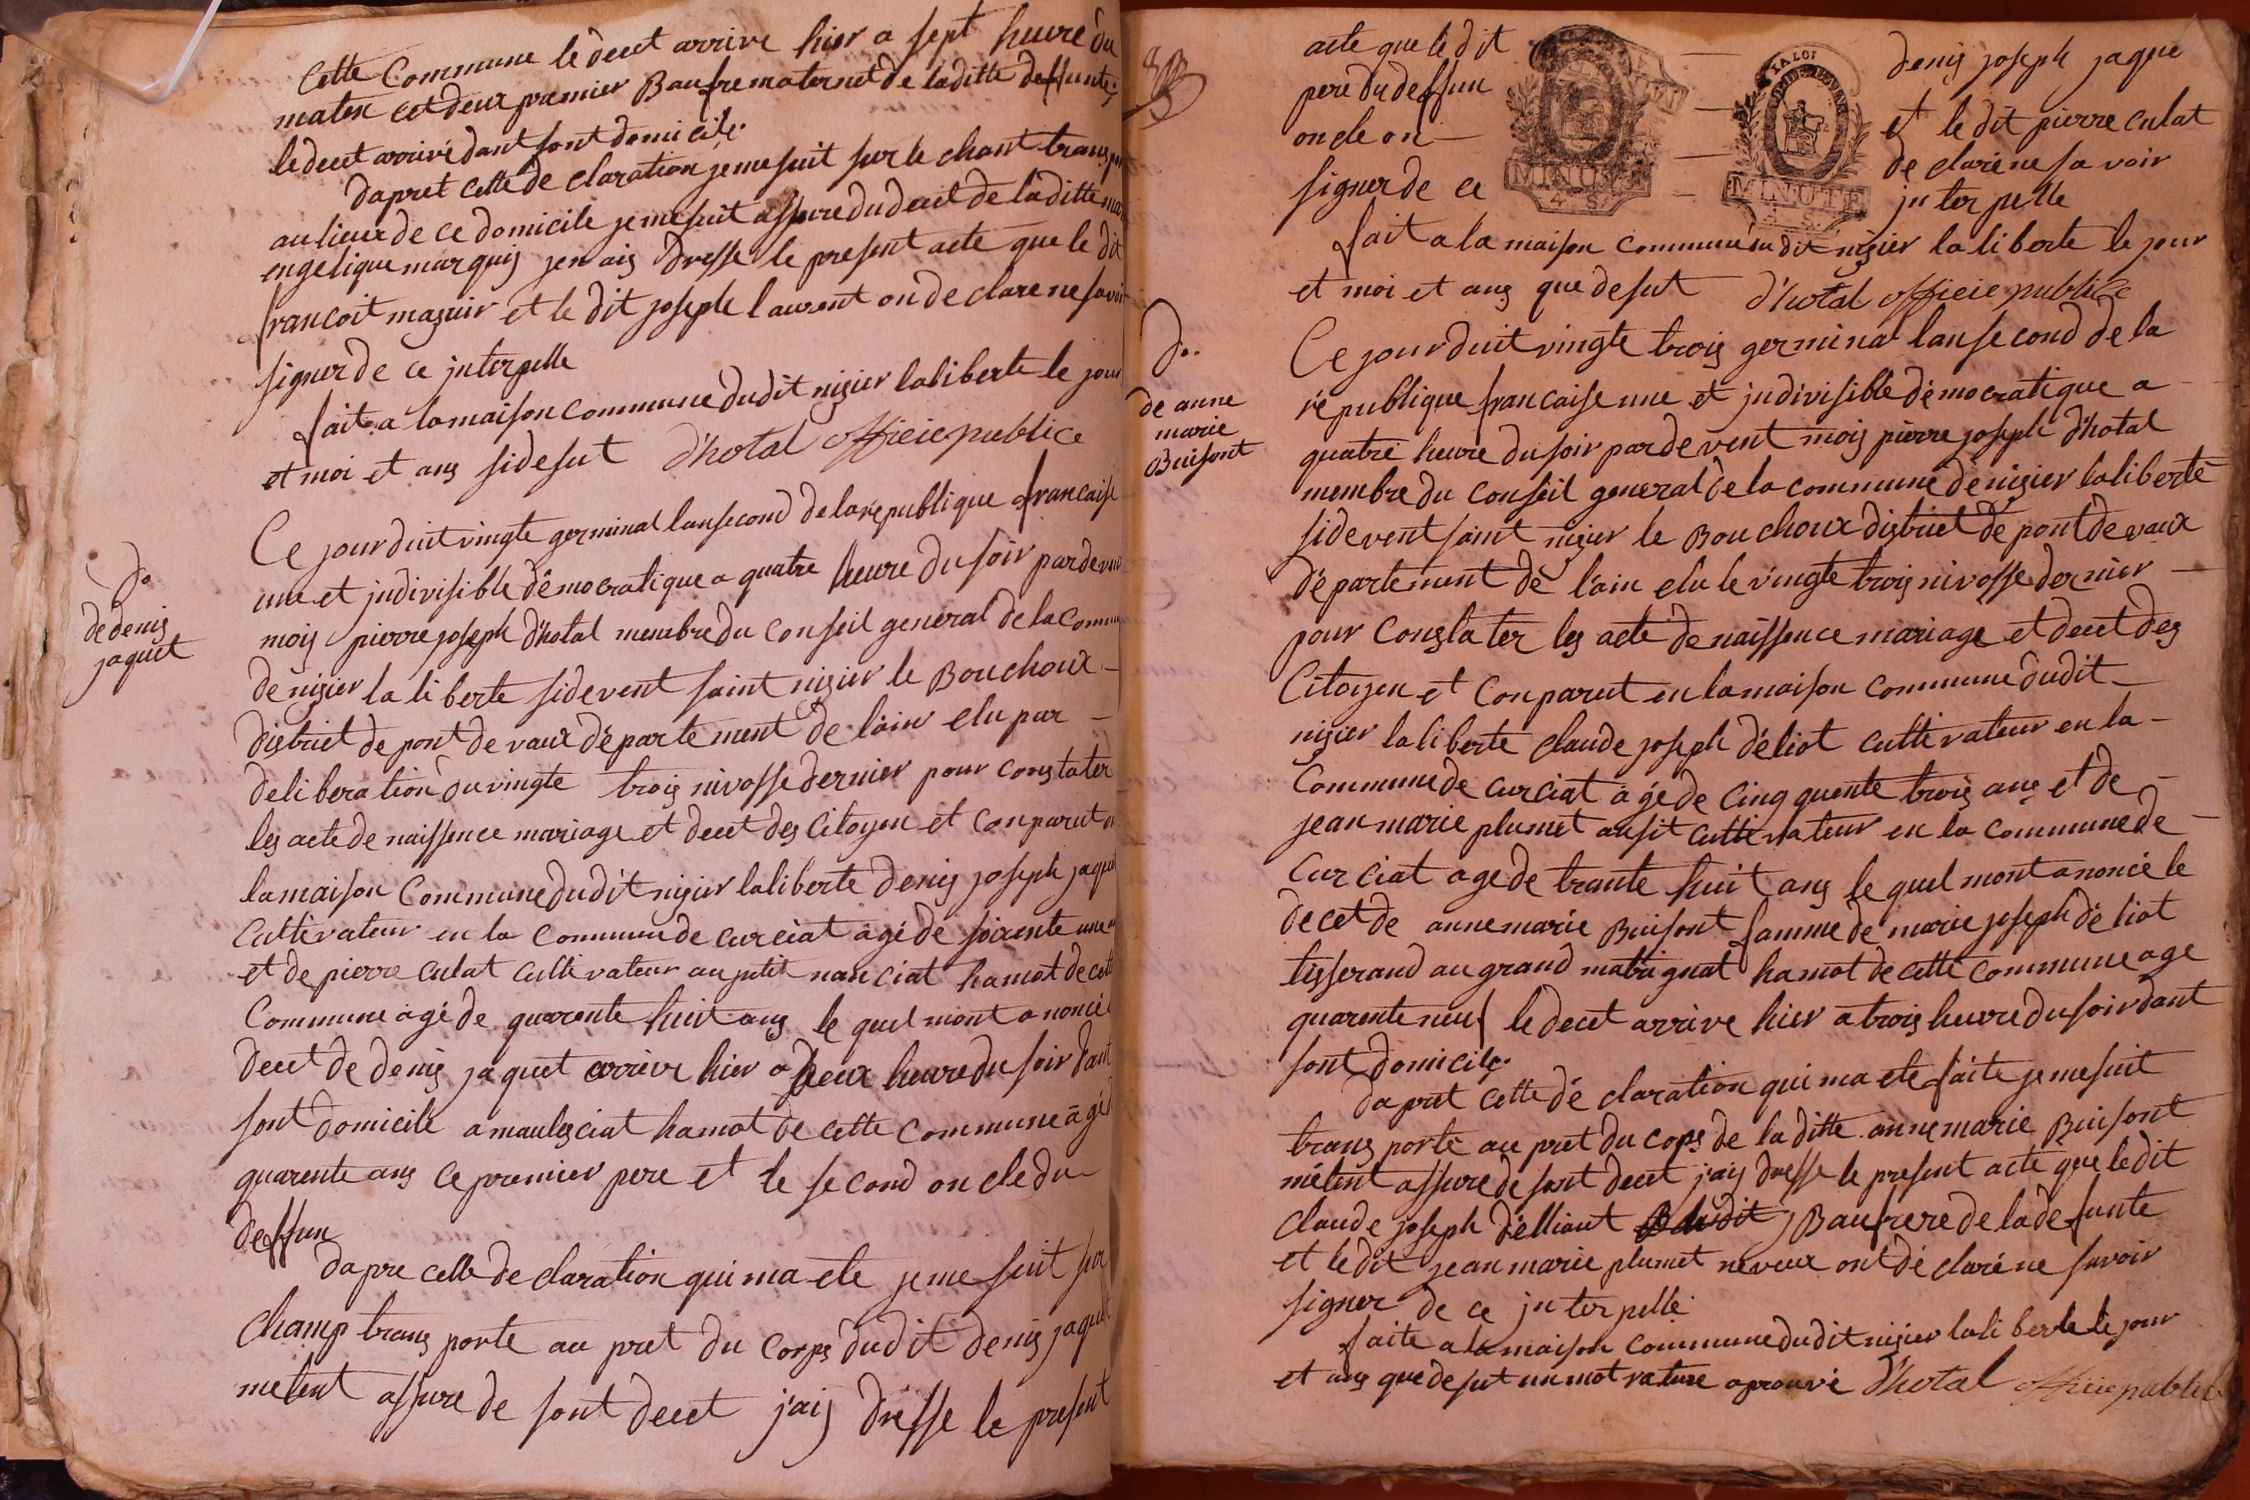 cette Commune le decet arrive hier a sept heure du
maten cet deux premier Baufre maternet de laditte deffunte
le decet arrivé dant sont domicile.
dapret cette de claration je me suit sur le chant trans
au lieux de ce domicile je me suit assure du decet de laditte
engelique marquis jen ais dresse le present acte que le dit
francoit maguir et le dit joseph laurent on declare ne savoir
signer de ce jnterpelle
fait a la maison commune dudit nizier laliberte le jour
et moi et ans sidesut d'hotal officie publice
d.
de denis
jaquet
Ce jourduit vingte germinal lansecond de la republique francaise
une et jndivisible démocratique a quatre heure du soir pardevent
mois pierre joseph d'hotal membre du conseil general de la commune
de nizier la liberte sidevent saint nizier le Bouchoux
district de pont de vaux département de l'ain elu par
deliberation du vingte trois nivosse dernier pour constater
les acte de naissence mariage et decet des Citoyen et conparut en
la maison Commune dudit nizier laliberte denis joseph jaquet
Cultivateur en la commune de curciat agé de soixente une
et de pierre culat cultivateur au petit nanciat hamot de cette
Commune agé de quarente huit ans le quel mont anoncé
decet de denis jaquet arrive hier a deux heure du soir dant
sont domicile a maulesciat hamot de cette commune agé
quarente ans ce premier pere et le second oncle du
deffun
dapre cette de claration qui ma ete je me suit sur
champ trans porte au pret du corps dudit denis jaquet
metent assure de sont decet j'ais dresse le present
acte que le dit denis joseph jaque
pere du deffun et le dit pierre culat
oncle on declaré ne savoir
signer de ce jnterpelle
LA LOI
MINUTE
4. S.
MINUTE
4. S.
fait a la maison commune du dit nizier laliberte le jour
et moi et ans que desut d'hotal officie publice
d.
de anne
marie
Buisont
Ce jourduit vingte trois germinal lansecond de la
république francaise une et jndivisible démocratique a
quatre heure du soir pardevent mois pierre joseph d'hotal
membre du conseil general de la commune de nizier laliberté
sidevent saint nizier le Bouchoux district de pont de vaux
département de l'ain elu le vingte trois nivosse dernier
pour constater les acte de naissence mariage et decet des
Citoyen et conparut en la maison commune dudit
nizier laliberte claude joseph déliot cultivateur en la
Commune de curciat agé de cinq quente trois ans et de
jean marie plumet ausit cultivateur en la commune de
Curciat age de trante huit ans le quel mont anoncé le
decet de anne marie Buisont famme de marie joseph déliot
tisserand au grand matrignat hamot de cette commune age
quarente neuf le decet arrive hier a trois heure du soir dant
sont domicile.
dapret cette dé claration qui ma ete faite je me suit
trans porté au pret du cops de la ditte anne marie Buisont
métent assure de sont decet j'ais dresse le present acte que le dit
Claude joseph délliaut Baufrere de la defunte
et le dit jean marie plumet neveux ont déclaré ne savoir
signer de ce jnterpellé
faite a la maison commune dudit nizier laliberte le jour
et ans que desut un mot rature aprouvé d'hotal officie publice